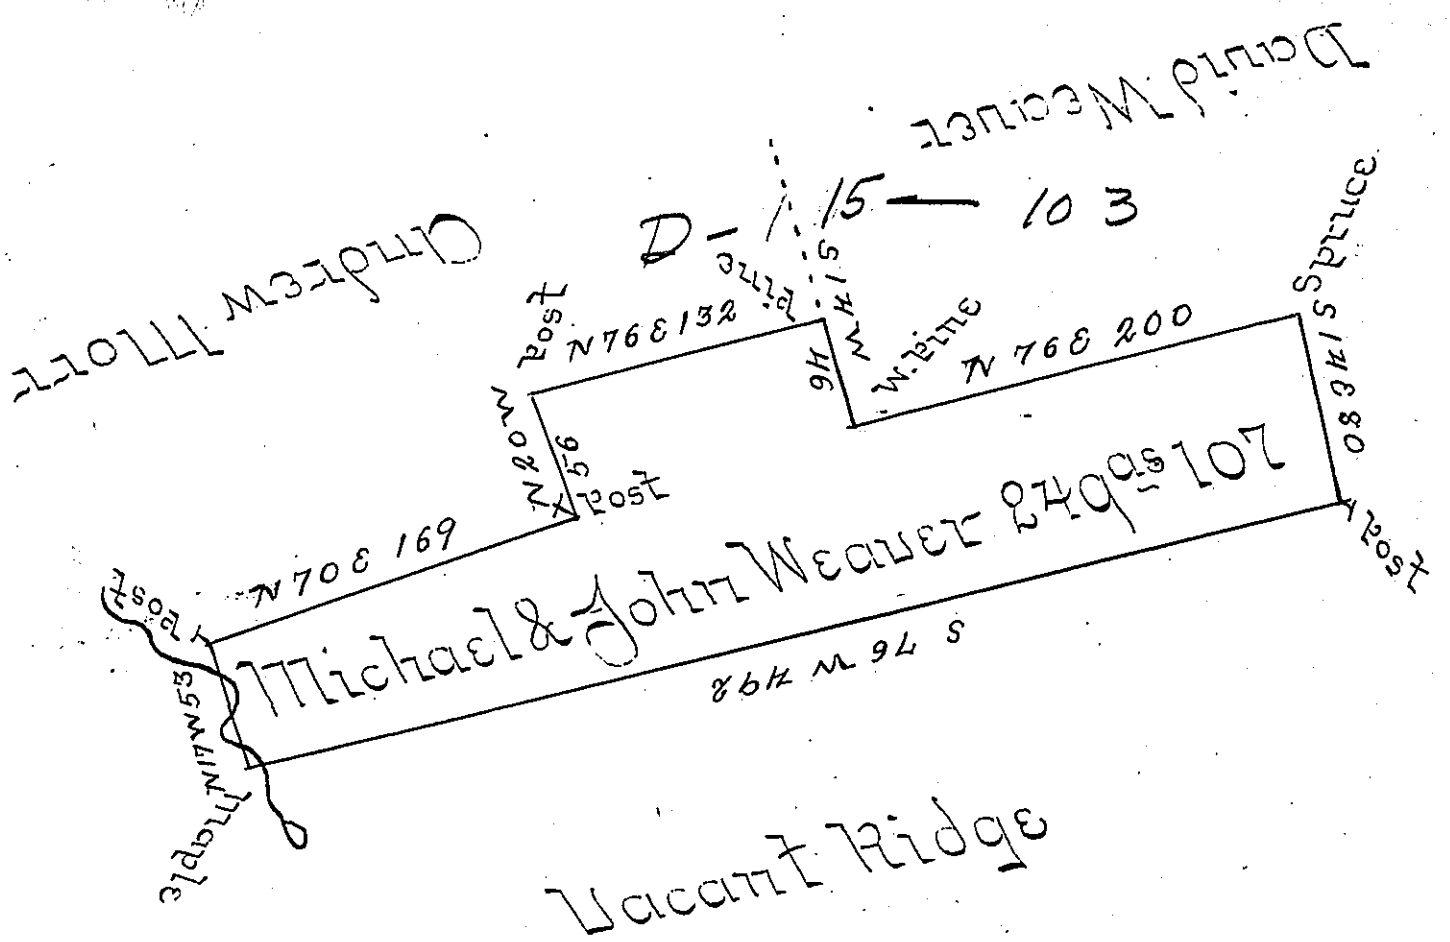 David Weaver
D-115 — 103
Andrew Morr
Spruce
Pine
S 14 W
46
Post
N 76 E 132
W. Pine
N 76 E 200
S 14 E 80
N 20 W
56
Post
Post
N 70 E 169
Post
Michael & John Weaver 249 as 107
S 76 W 492
N 17 W 53
Maple
Vacant Ridge